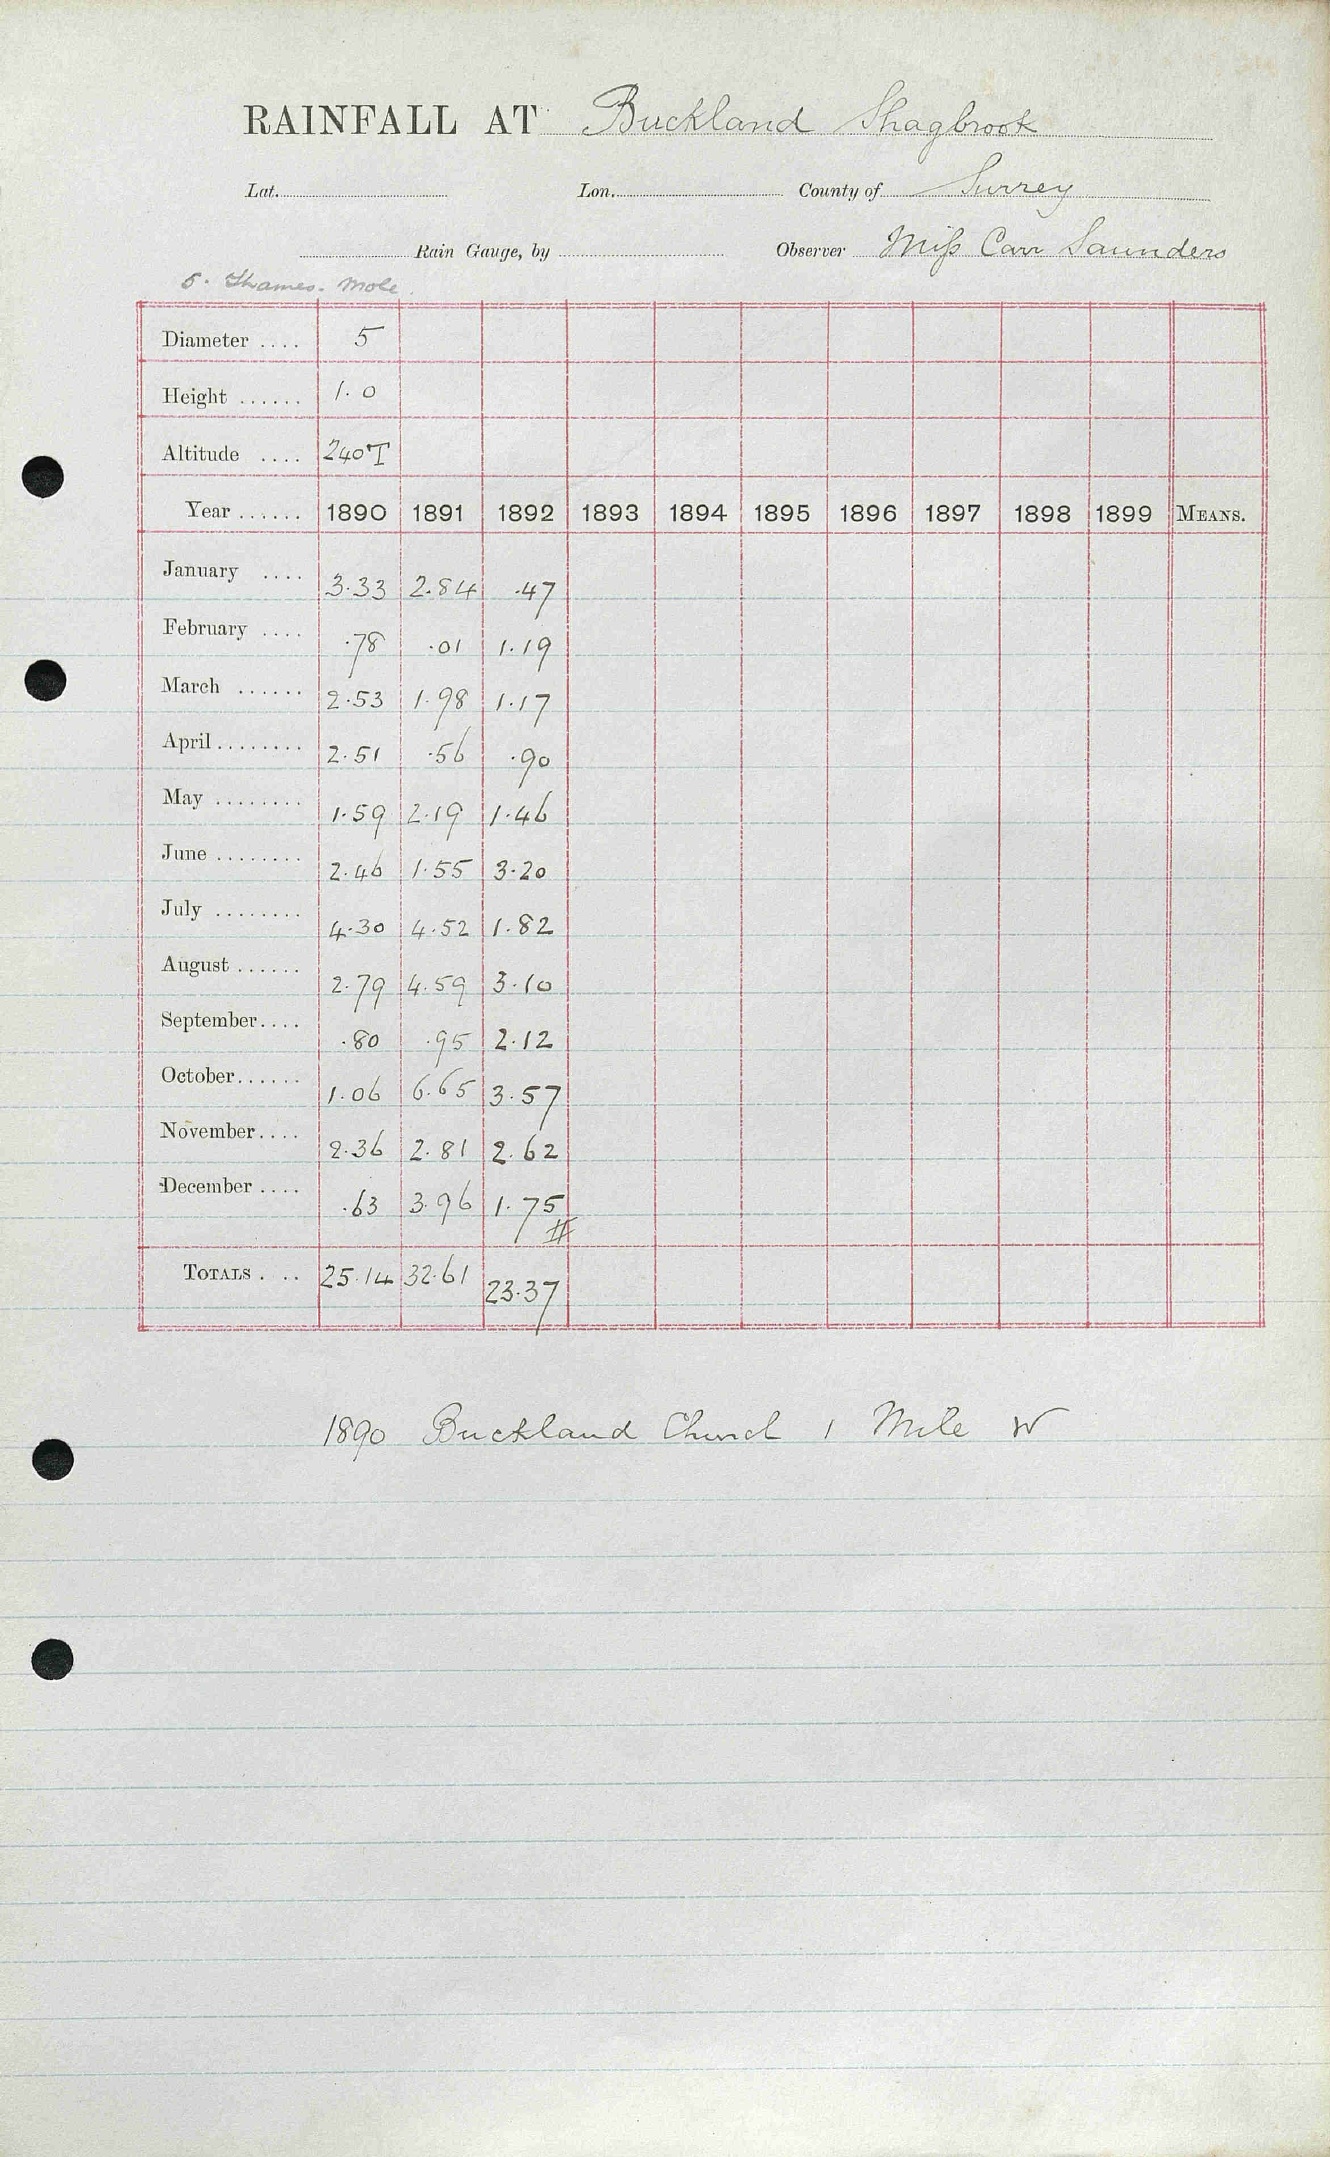 RAINFALL AT Buckland Shagbrook
Lat. Lon. County of Surrey
Rain Gauge, by Observer Miss Carr Saunders
5. Thames. Mole.
Diameter .... 5
Height ...... 1.0
Altitude .... 240 T
Year ...... 1890 1891 1892 1893 1894 1895 1896 1897 1898 1899 MEANS.
January .... 3.33 2.84 .47
February .... .78 .01 1.19
March ...... 2.53 1.98 1.17
April ........ 2.51 .56 .90
May ........ 1.59 2.19 1.46
June ........ 2.46 1.55 3.20
July ........ 4.30 4.52 1.82
August ...... 2.79 4.59 3.10
September .... .80 .95 2.12
October ...... 1.06 6.65 3.57
November .... 2.36 2.81 2.62
December .... .63 3.96 1.75
#
TOTALS . .. 25.14 32.61 23.37
1890 Buckland Church 1 Mile W